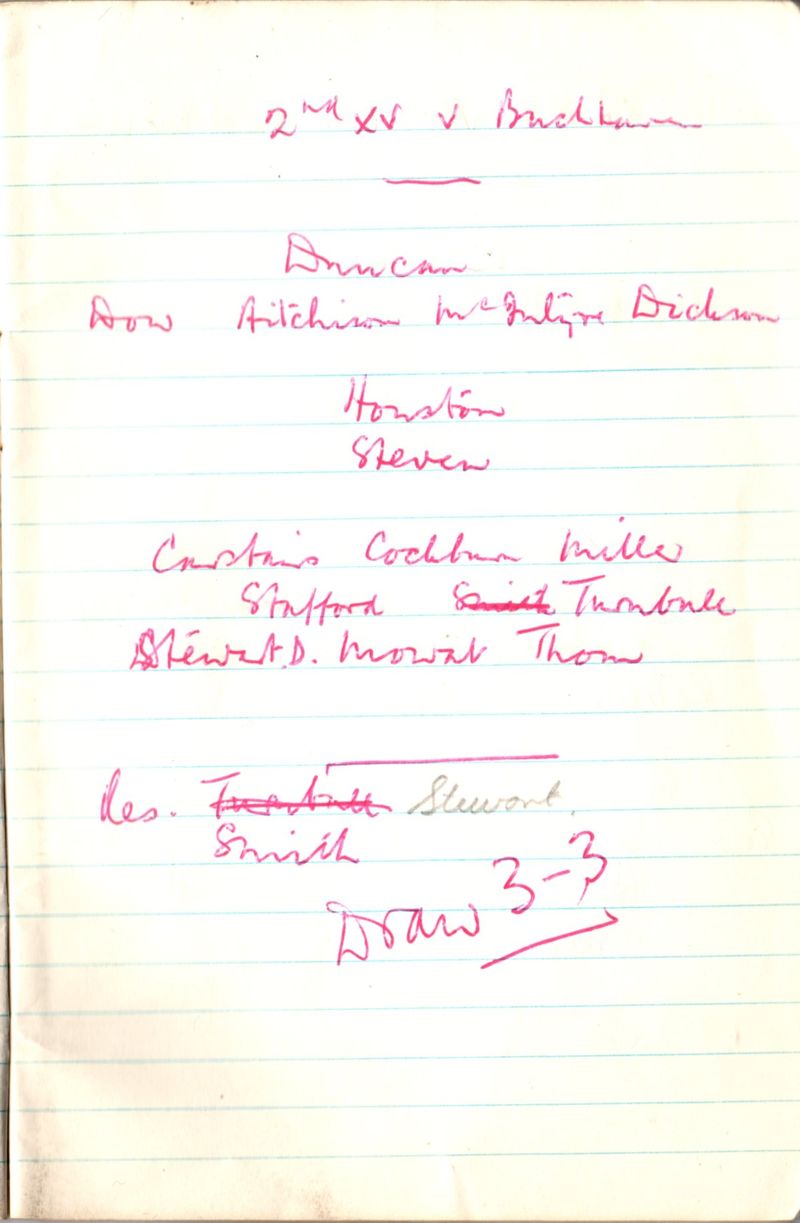 2nd XV v Buckhaven
Duncan
Dow Aitchison McIntyre Dickson
Houston
Steven
Carstairs Cochburn Miller
Stafford Smith Turnbull
Stewart.D. Mowat Thom
Res. Turnbull Stewart.
Smith
Draw 3-3